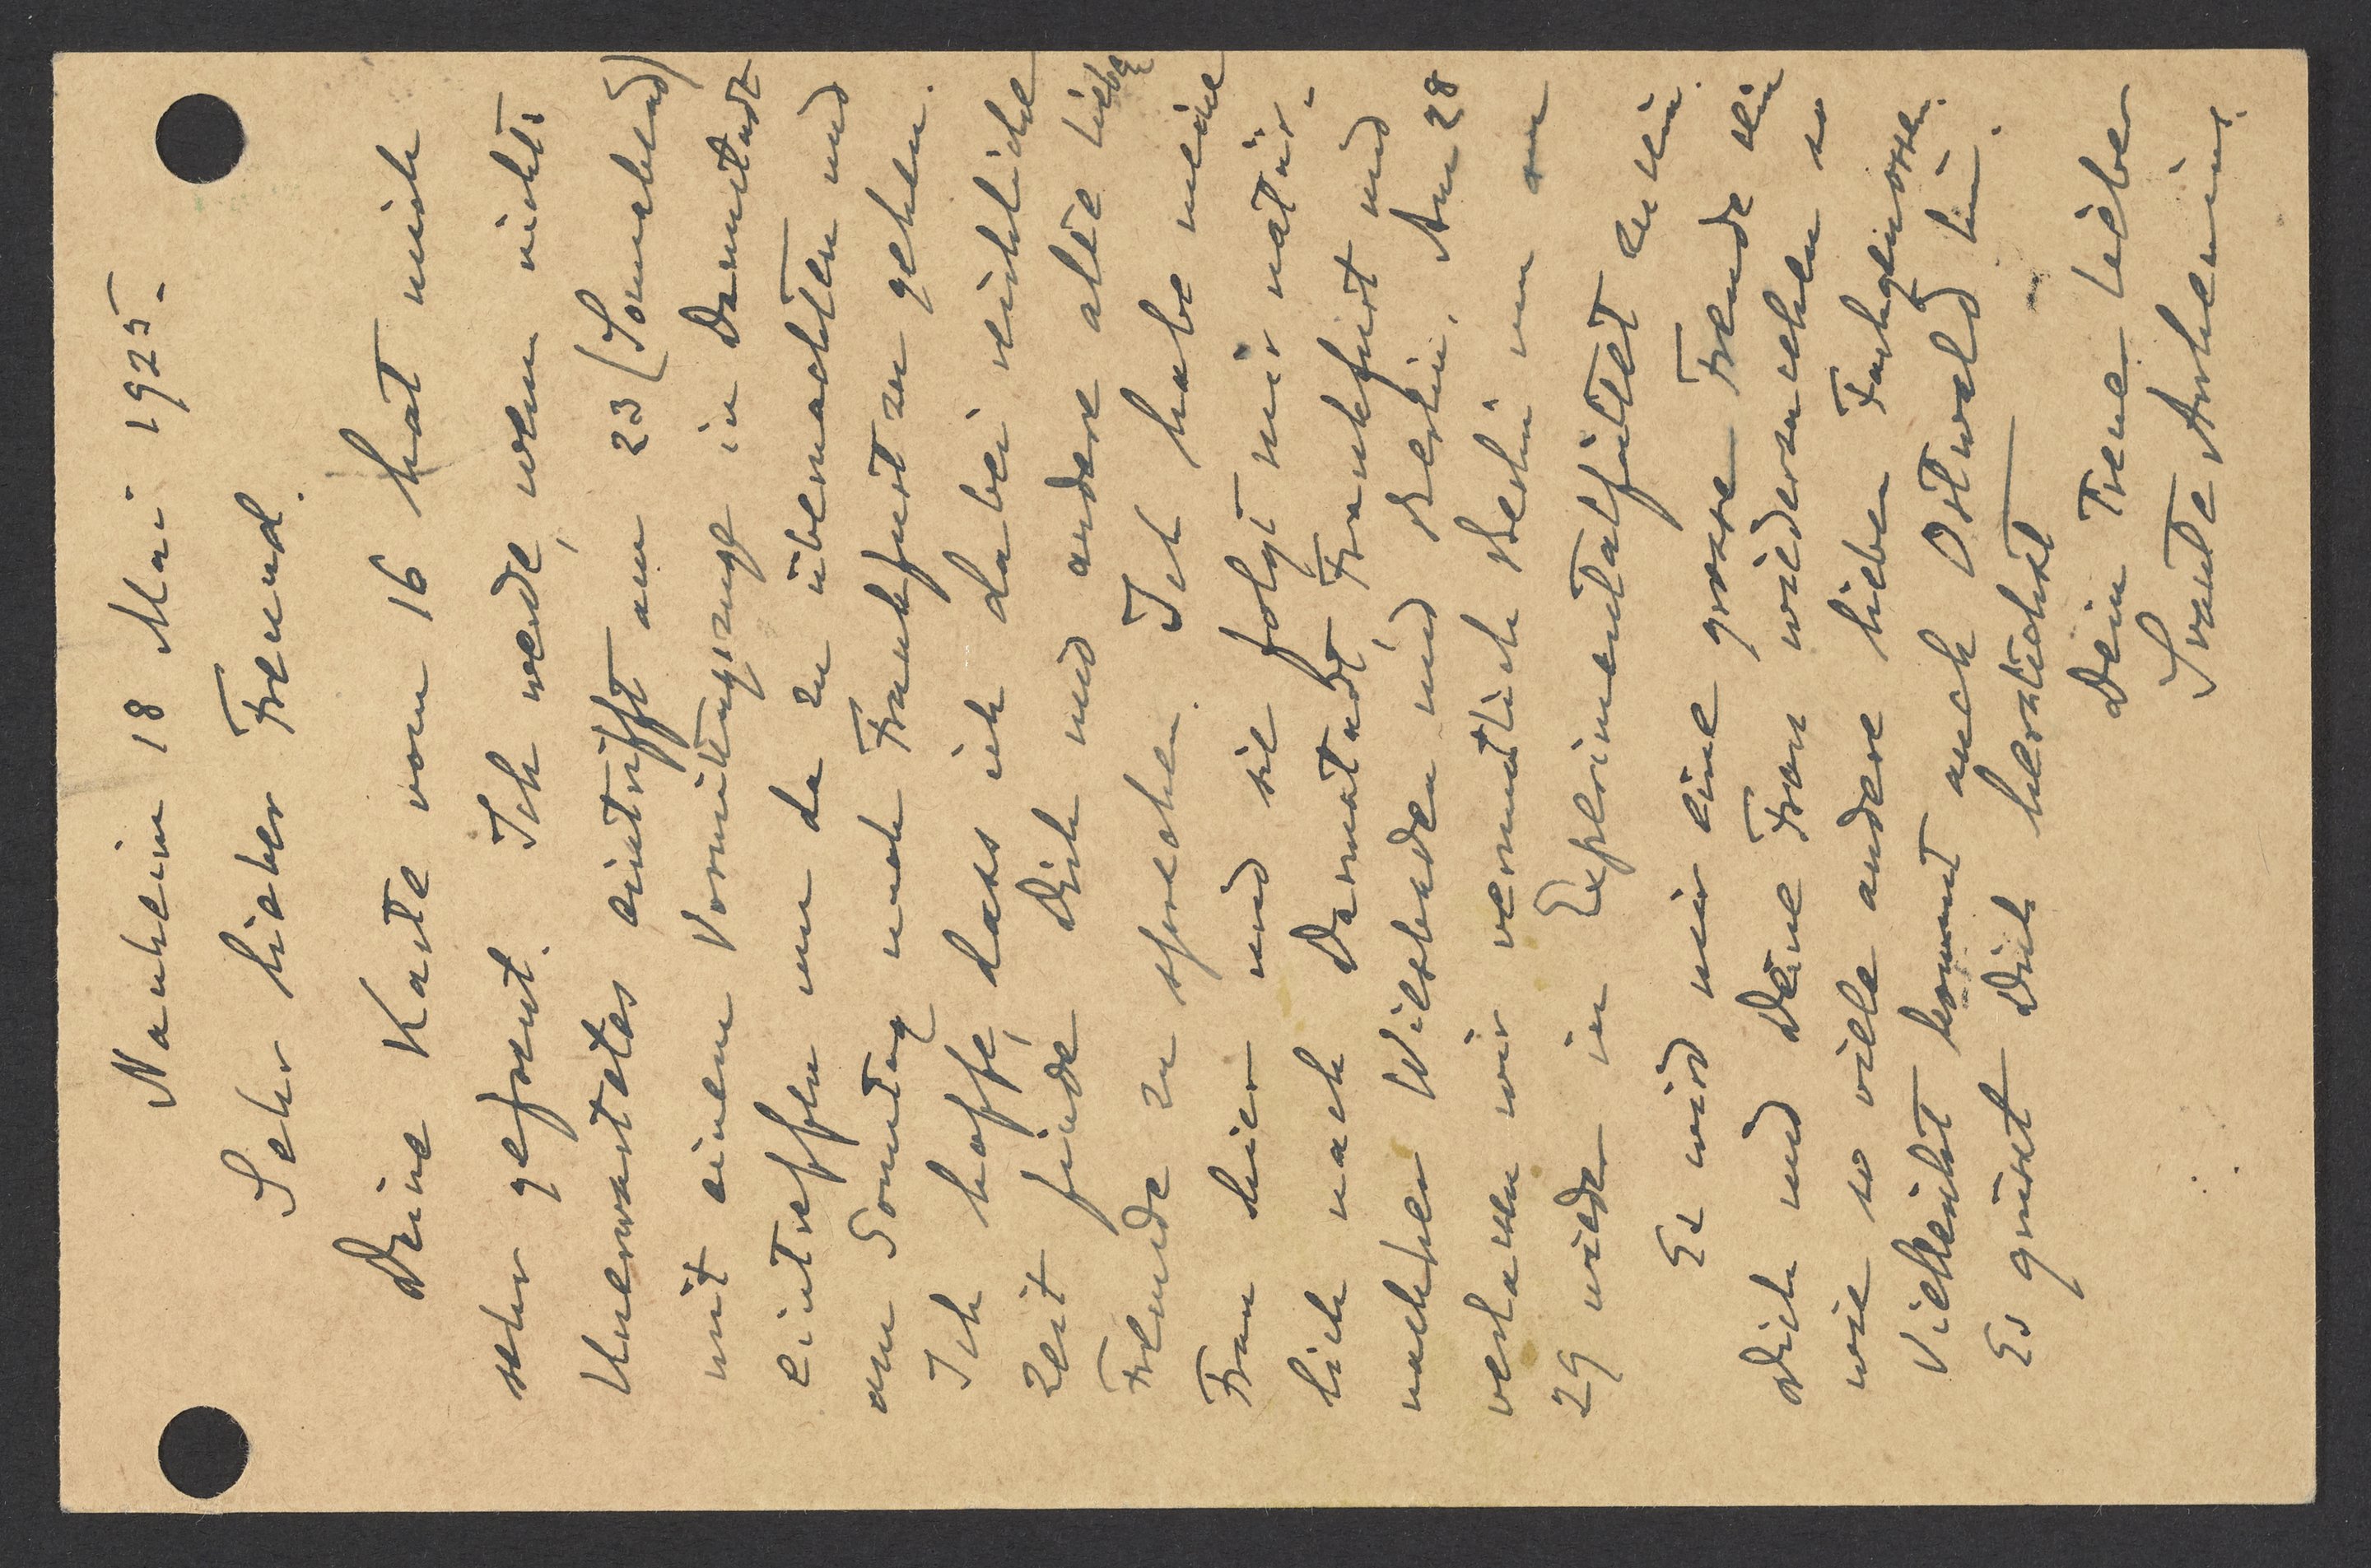 Nauheim 18 Mai 1925.
Sehr lieber Freund.
Deine Karte vom 16 hat mich
sehr gefreut. Ich werde, wenn nichts
Unerwartetes eintrifft am 23 (Sonnabend)
mit einem Vormittagszuge in Darmstadt
eintreffen um da zu übernachten und
am Sonntag nach Frankfurt zu gehen.
Ich hoffe, dass ich dabei reichliche
Zeit finde Dich und andere alte liebe
Freunde zu sprechen. Ich habe meine
Frau hier und sie folgt mir natür-
lich nach Darmstadt, Frankfurt und
nachher Wiesbaden und Berlin. Am 28
verlassen wir vermutlich Berlin um am
29 wieder in Experimentalfältet zu sein.
Es wird mir eine grosse Freude sein
Dich und Deine Frau wiederzusehen so
wie so viele andere lieben Fachgenossen.
Vielleicht kommt auch Ostwald hin.
Es grüsst Dich herzlichst
Dein Treuer lieber
Svante Arrhenius.